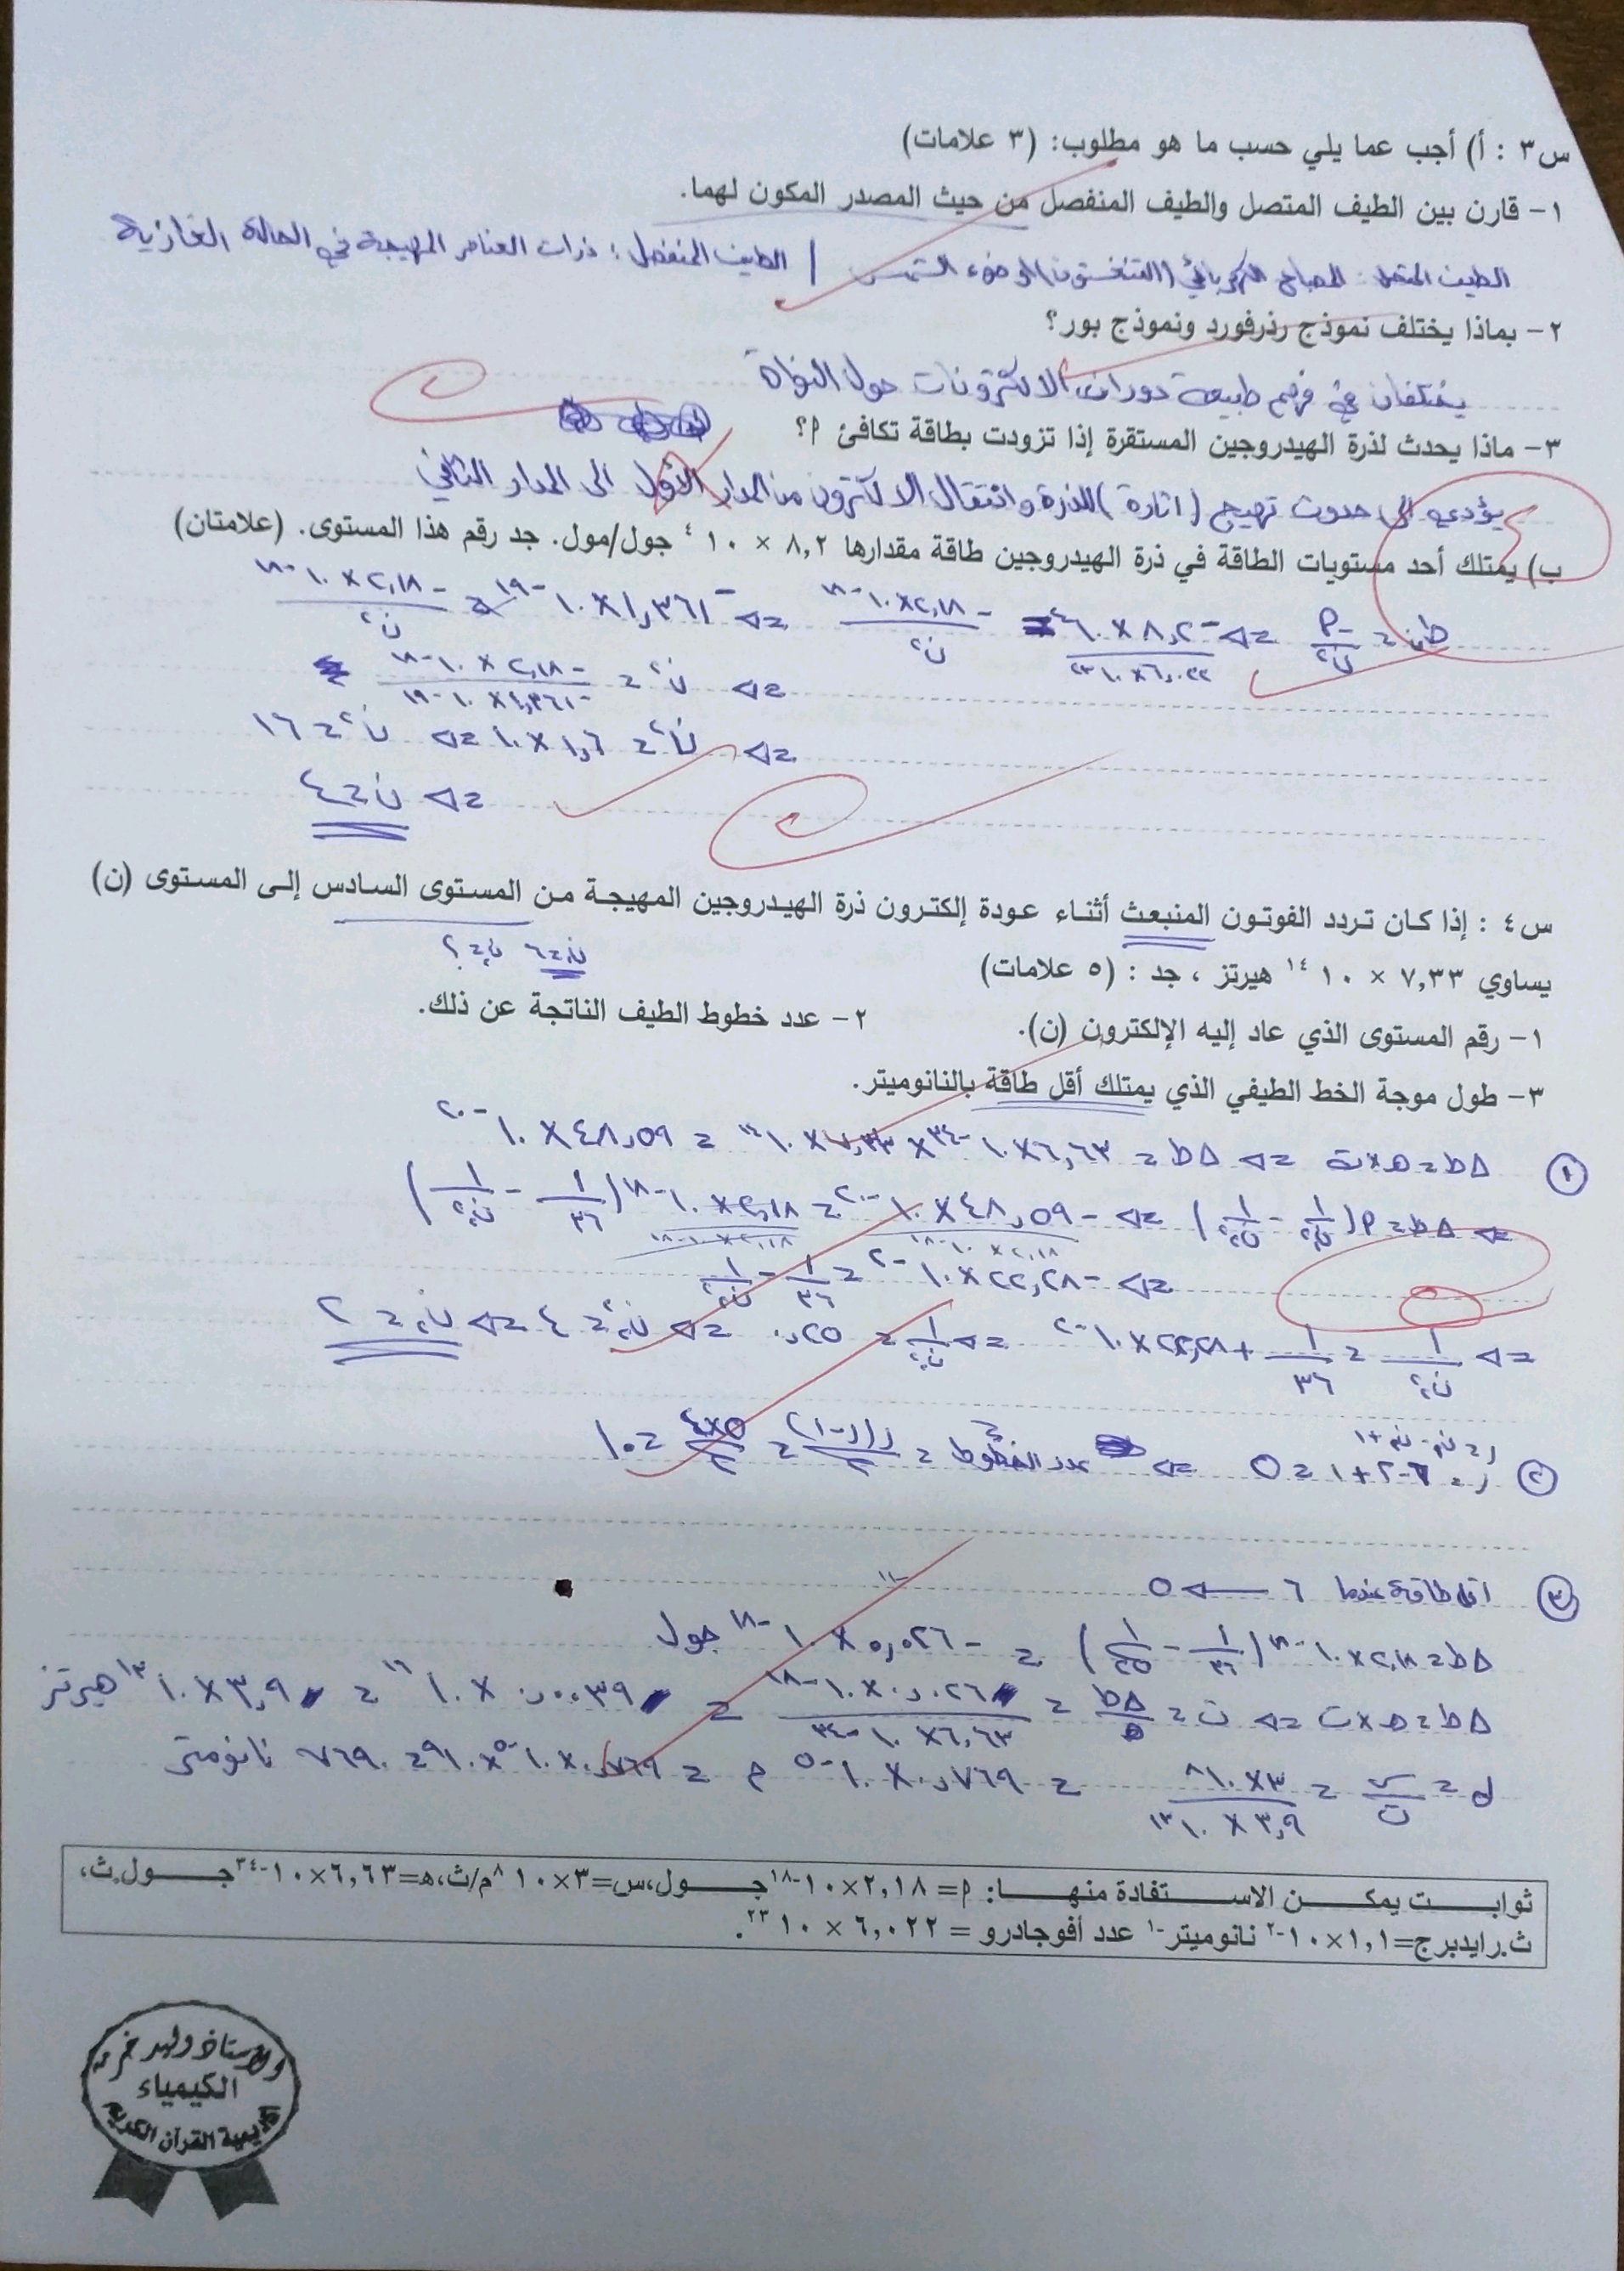 س٣ : أ) أجب عما يلي حسب ما هو مطلوب: (٣ علامات)
١- قارن بين الطيف المتصل والطيف المنفصل من حيث المصدر المكون لهما.
الطيف المتصل : المصباح الكهربائي (التنغستون) او ضوء الشمس | الطيف المنفصل : ذرات العناصر المهيجة في الحالة الغازية
٢- بماذا يختلف نموذج رذرفورد ونموذج بور؟
يختلفان في فهم طبيعة دوران الالكترونات حول النواة
٣- ماذا يحدث لذرة الهيدروجين المستقرة إذا تزودت بطاقة تكافئ أ؟
يؤدي الى حدوث تهيج (اثارة) للذرة وانتقال الالكترون من المدار الأول الى المدار الثاني
ب) يمتلك أحد مستويات الطاقة في ذرة الهيدروجين طاقة مقدارها ٨,٢ × ١٠ ٤ جول/مول. جد رقم هذا المستوى. (علامتان)
طن = -أ/ن٢ <= -٨,٢ × ١٠ ٤ / ٦,٠٢٢ × ١٠ ٢٣ = -٢,١٨ × ١٠ -١٨ / ن٢ <= -١,٣٦١ × ١٠ -١٩ = -٢,١٨ × ١٠ -١٨ / ن٢
<= ن٢ = -٢,١٨ × ١٠ -١٨ / -١,٣٦١ × ١٠ -١٩
<= ن٢ = ١,٦ × ١٠ <= ن٢ = ١٦
<= ن = ٤
س٤ : إذا كان تردد الفوتون المنبعث أثناء عودة إلكترون ذرة الهيدروجين المهيجة من المستوى السادس إلى المستوى (ن)
ن١=٦ ن٢=؟
يساوي ٧,٣٣ × ١٠ ١٤ هيرتز ، جد : (٥ علامات)
١- رقم المستوى الذي عاد إليه الإلكترون (ن). ٢- عدد خطوط الطيف الناتجة عن ذلك.
٣- طول موجة الخط الطيفي الذي يمتلك أقل طاقة بالنانوميتر.
١ Δط = هـ × ت <= Δط = ٦,٦٣ × ١٠ -٣٤ × ٧,٣٣ × ١٠ ١٤ = ٤٨,٥٩ × ١٠ -٢٠
<= Δط = أ(١/ن١٢ - ١/ن٢٢) <= -٤٨,٥٩ × ١٠ -٢٠ / ٢,١٨ × ١٠ -١٨ = ٢,١٨ × ١٠ -١٨ / ٢,١٨ × ١٠ -١٨ (١/٣٦ - ١/ن٢٢)
<= -٢٢,٢٨ × ١٠ -٢ = ١/٣٦ - ١/ن٢٢
<= ١/ن٢٢ = ١/٣٦ + ٢٢,٢٨ × ١٠ -٢ <= ١/ن٢٢ = ٠,٢٥ <= ن٢٢ = ٤ <= ن٢ = ٢
٢ ر = ٦-٢+١ = ٥ <= عدد الخطوط = ر(ر-١)/٢ = ٥×٤/٢ = ١٠
٣ اقل طاقة عندما ٦ → ٥
Δط = ٢,١٨ × ١٠ -١٨ (١/٣٦ - ١/٢٥) = -٠,٠٢٦ × ١٠ -١٨ جول
Δط = هـ × ت <= ت = Δط/هـ = ٠,٠٢٦ × ١٠ -١٨ / ٦,٦٣ × ١٠ -٣٤ = ٠,٠٠٣٩ × ١٠ ١٦ = ٣,٩ × ١٠ ١٣ هيرتز
ل = س/ت = ٣ × ١٠ ٨ / ٣,٩ × ١٠ ١٣ = ٠,٧٦٩ × ١٠ -٥ م = ٠,٧٦٩ × ١٠ -٥ × ١٠ ٩ = ٧٦٩٠ نانومتر
ثوابت يمكن الاستفادة منها: أ= ٢,١٨×١٠ -١٨ جول،س=٣×١٠ ٨ م/ث،هـ=٦,٦٣×١٠ -٣٤ جول.ث،
ث.رايدبرج=١,١×١٠ -٢ نانوميتر-١ عدد أفوجادرو = ٦,٠٢٢ × ١٠ ٢٣ .
الكيمياء
القرآن الكريم